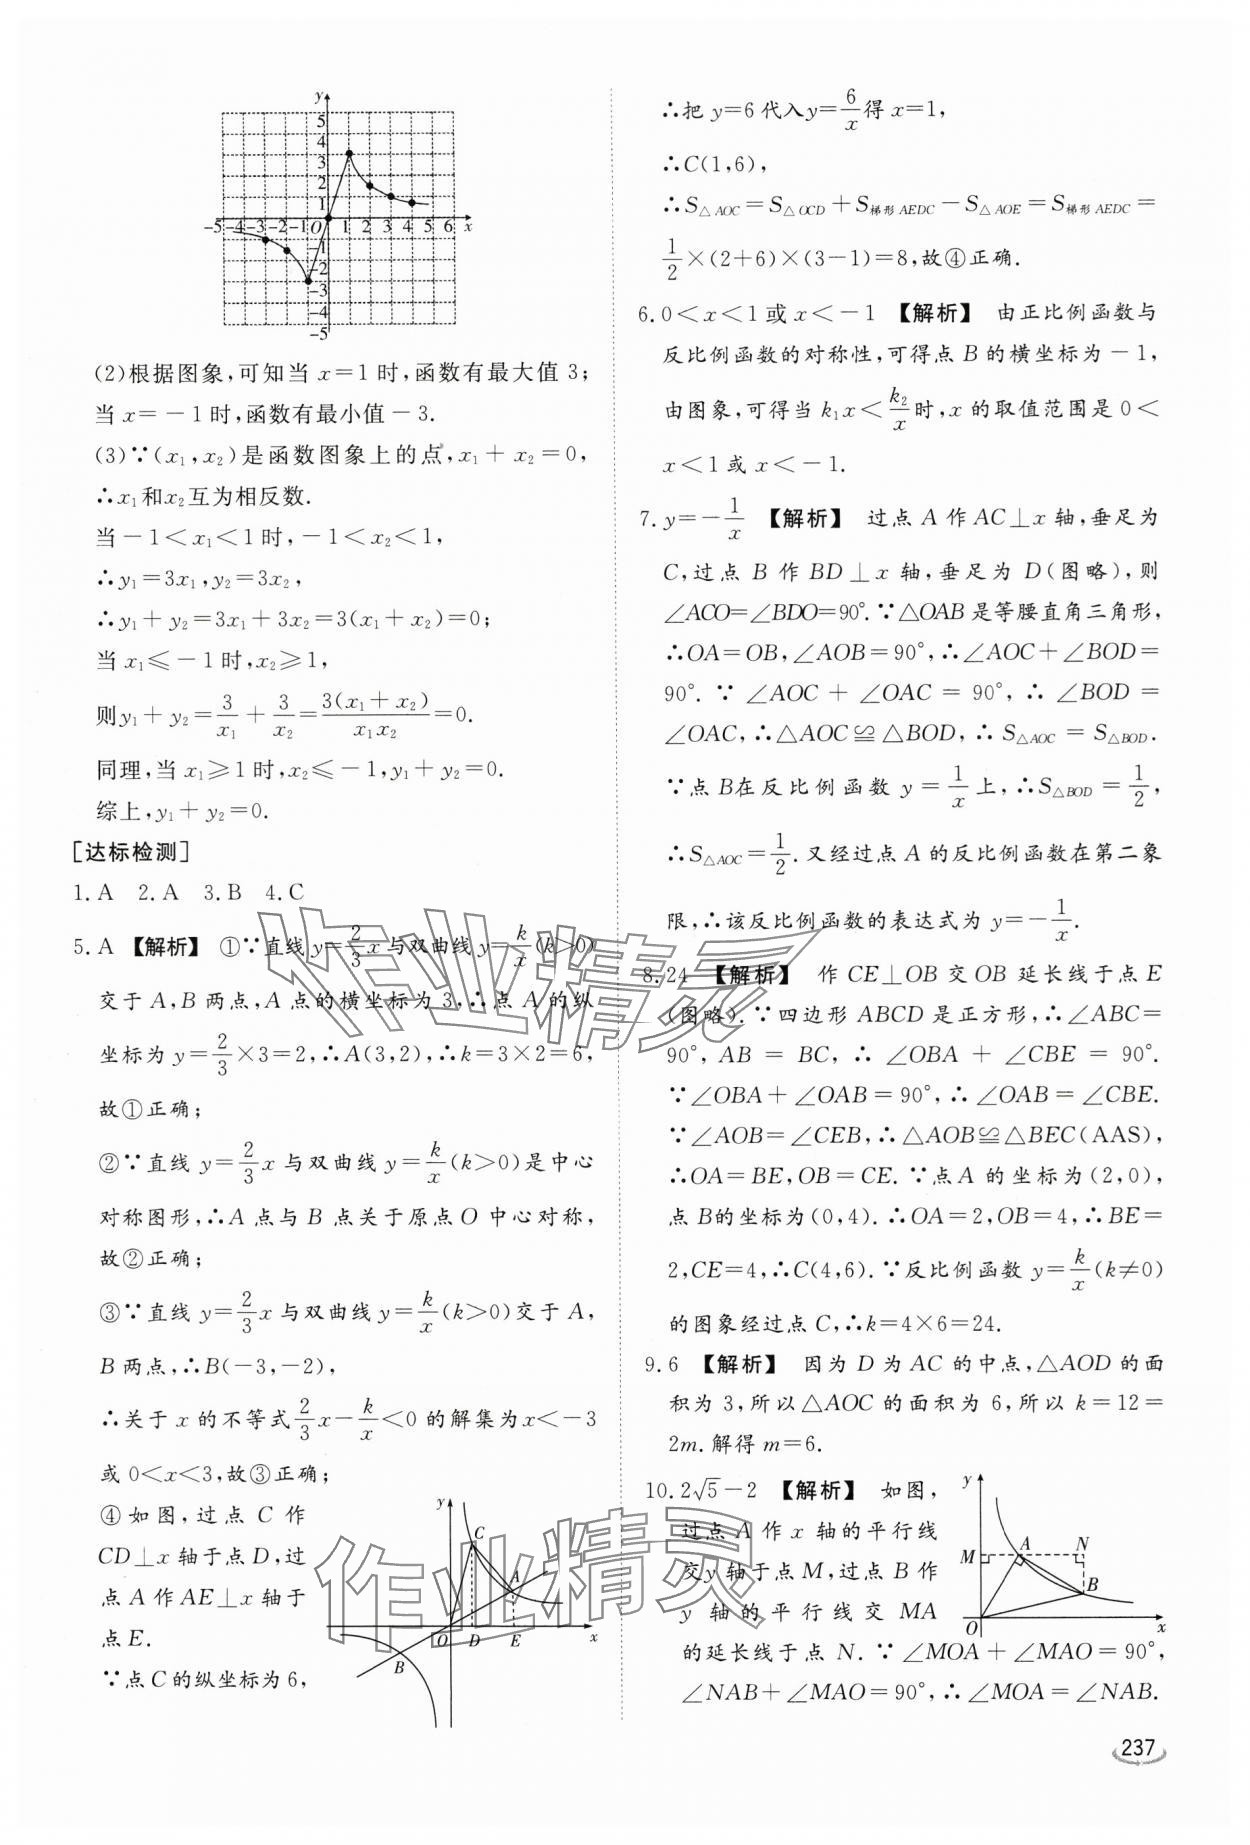 y
5
4
3
2
1
-5 -4 -3 -2 -1 O 1 2 3 4 5 6 x
-1
-2
-3
-4
-5
(2)根据图象,可知当 x=1 时,函数有最大值 3;
当 x=-1时,函数有最小值-3.
(3)∵(x₁,x₂)是函数图象上的点,x₁+x₂=0,
∴x₁和x₂互为相反数.
当-1<x₁<1时,-1<x₂<1,
∴y₁=3x₁,y₂=3x₂,
∴y₁+y₂=3x₁+3x₂=3(x₁+x₂)=0;
当 x₁≤-1时,x₂≥1,
则y₁+y₂=3/x₁+3/x₂=3(x₁+x₂)/x₁x₂=0.
同理,当 x₁≥1时,x₂≤-1,y₁+y₂=0.
综上,y₁+y₂=0.
[达标检测]
1.A 2.A 3.B 4.C
5.A 【解析】 ①∵直线y=2/3x与双曲线y=k/x(k>0)
交于 A,B 两点,A 点的横坐标为 3,∴点 A 的纵
坐标为 y=2/3×3=2,∴A(3,2),∴k=3×2=6,
故①正确;
②∵直线 y=2/3x 与双曲线 y=k/x(k>0)是中心
对称图形,∴A 点与 B 点关于原点O 中心对称,
故②正确;
③∵直线 y=2/3x 与双曲线 y=k/x(k>0)交于 A,
B 两点,∴B(-3,-2),
∴关于 x 的不等式2/3x-k/x<0 的解集为x<-3
或 0<x<3,故③正确;
④ 如图,过点 C 作
CD⊥x 轴于点 D,过
点 A 作 AE⊥x 轴于
点 E.
∵点 C 的纵坐标为 6,
y
C
A
O D E x
B
∴把 y=6 代入y=6/x得 x=1,
∴C(1,6),
∴S△AOC=S△OCD+S梯形AEDC-S△AOE=S梯形AEDC=
1/2×(2+6)×(3-1)=8,故④正确.
6.0<x<1 或 x<-1 【解析】 由正比例函数与
反比例函数的对称性,可得点 B 的横坐标为-1,
由图象,可得当 k₁x<k₂/x时,x 的取值范围是 0<
x<1 或 x<-1.
7.y=-1/x 【解析】 过点 A 作 AC⊥x 轴,垂足为
C,过点 B 作 BD⊥x 轴,垂足为 D(图略),则
∠ACO=∠BDO=90°.∵△OAB 是等腰直角三角形,
∴OA=OB,∠AOB=90°,∴∠AOC+∠BOD=
90°.∵ ∠AOC + ∠OAC = 90°,∴ ∠BOD =
∠OAC,∴△AOC≌△BOD,∴S△AOC=S△BOD.
∵点 B在反比例函数 y=1/x上,∴S△BOD=1/2,
∴S△AOC=1/2.又经过点 A 的反比例函数在第二象
限,∴该反比例函数的表达式为 y=-1/x.
8.24 【解析】 作 CE⊥OB 交 OB 延长线于点 E
(图略).∵四边形 ABCD 是正方形,∴∠ABC=
90°,AB = BC,∴ ∠OBA + ∠CBE = 90°.
∵∠OBA+∠OAB=90°,∴∠OAB=∠CBE.
∵∠AOB=∠CEB,∴△AOB≌△BEC(AAS),
∴OA=BE,OB=CE.∵点 A 的坐标为(2,0),
点 B的坐标为(0,4).∴OA=2,OB=4,∴BE=
2,CE=4,∴C(4,6).∵反比例函数 y=k/x(k≠0)
的图象经过点 C,∴k=4×6=24.
9.6 【解析】 因为 D 为 AC 的中点,△AOD 的面
积为 3,所以△AOC 的面积为 6,所以 k=12=
2m.解得 m=6.
10.2√5-2 【解析】 如图,
过点 A 作 x 轴的平行线
交y 轴于点 M,过点 B 作
y 轴的平行线交 MA
的延长线于点 N.∵∠MOA+∠MAO=90°,
∠NAB+∠MAO=90°,∴∠MOA=∠NAB.
y
M A N
B
O x
237
作业精灵
作业精灵